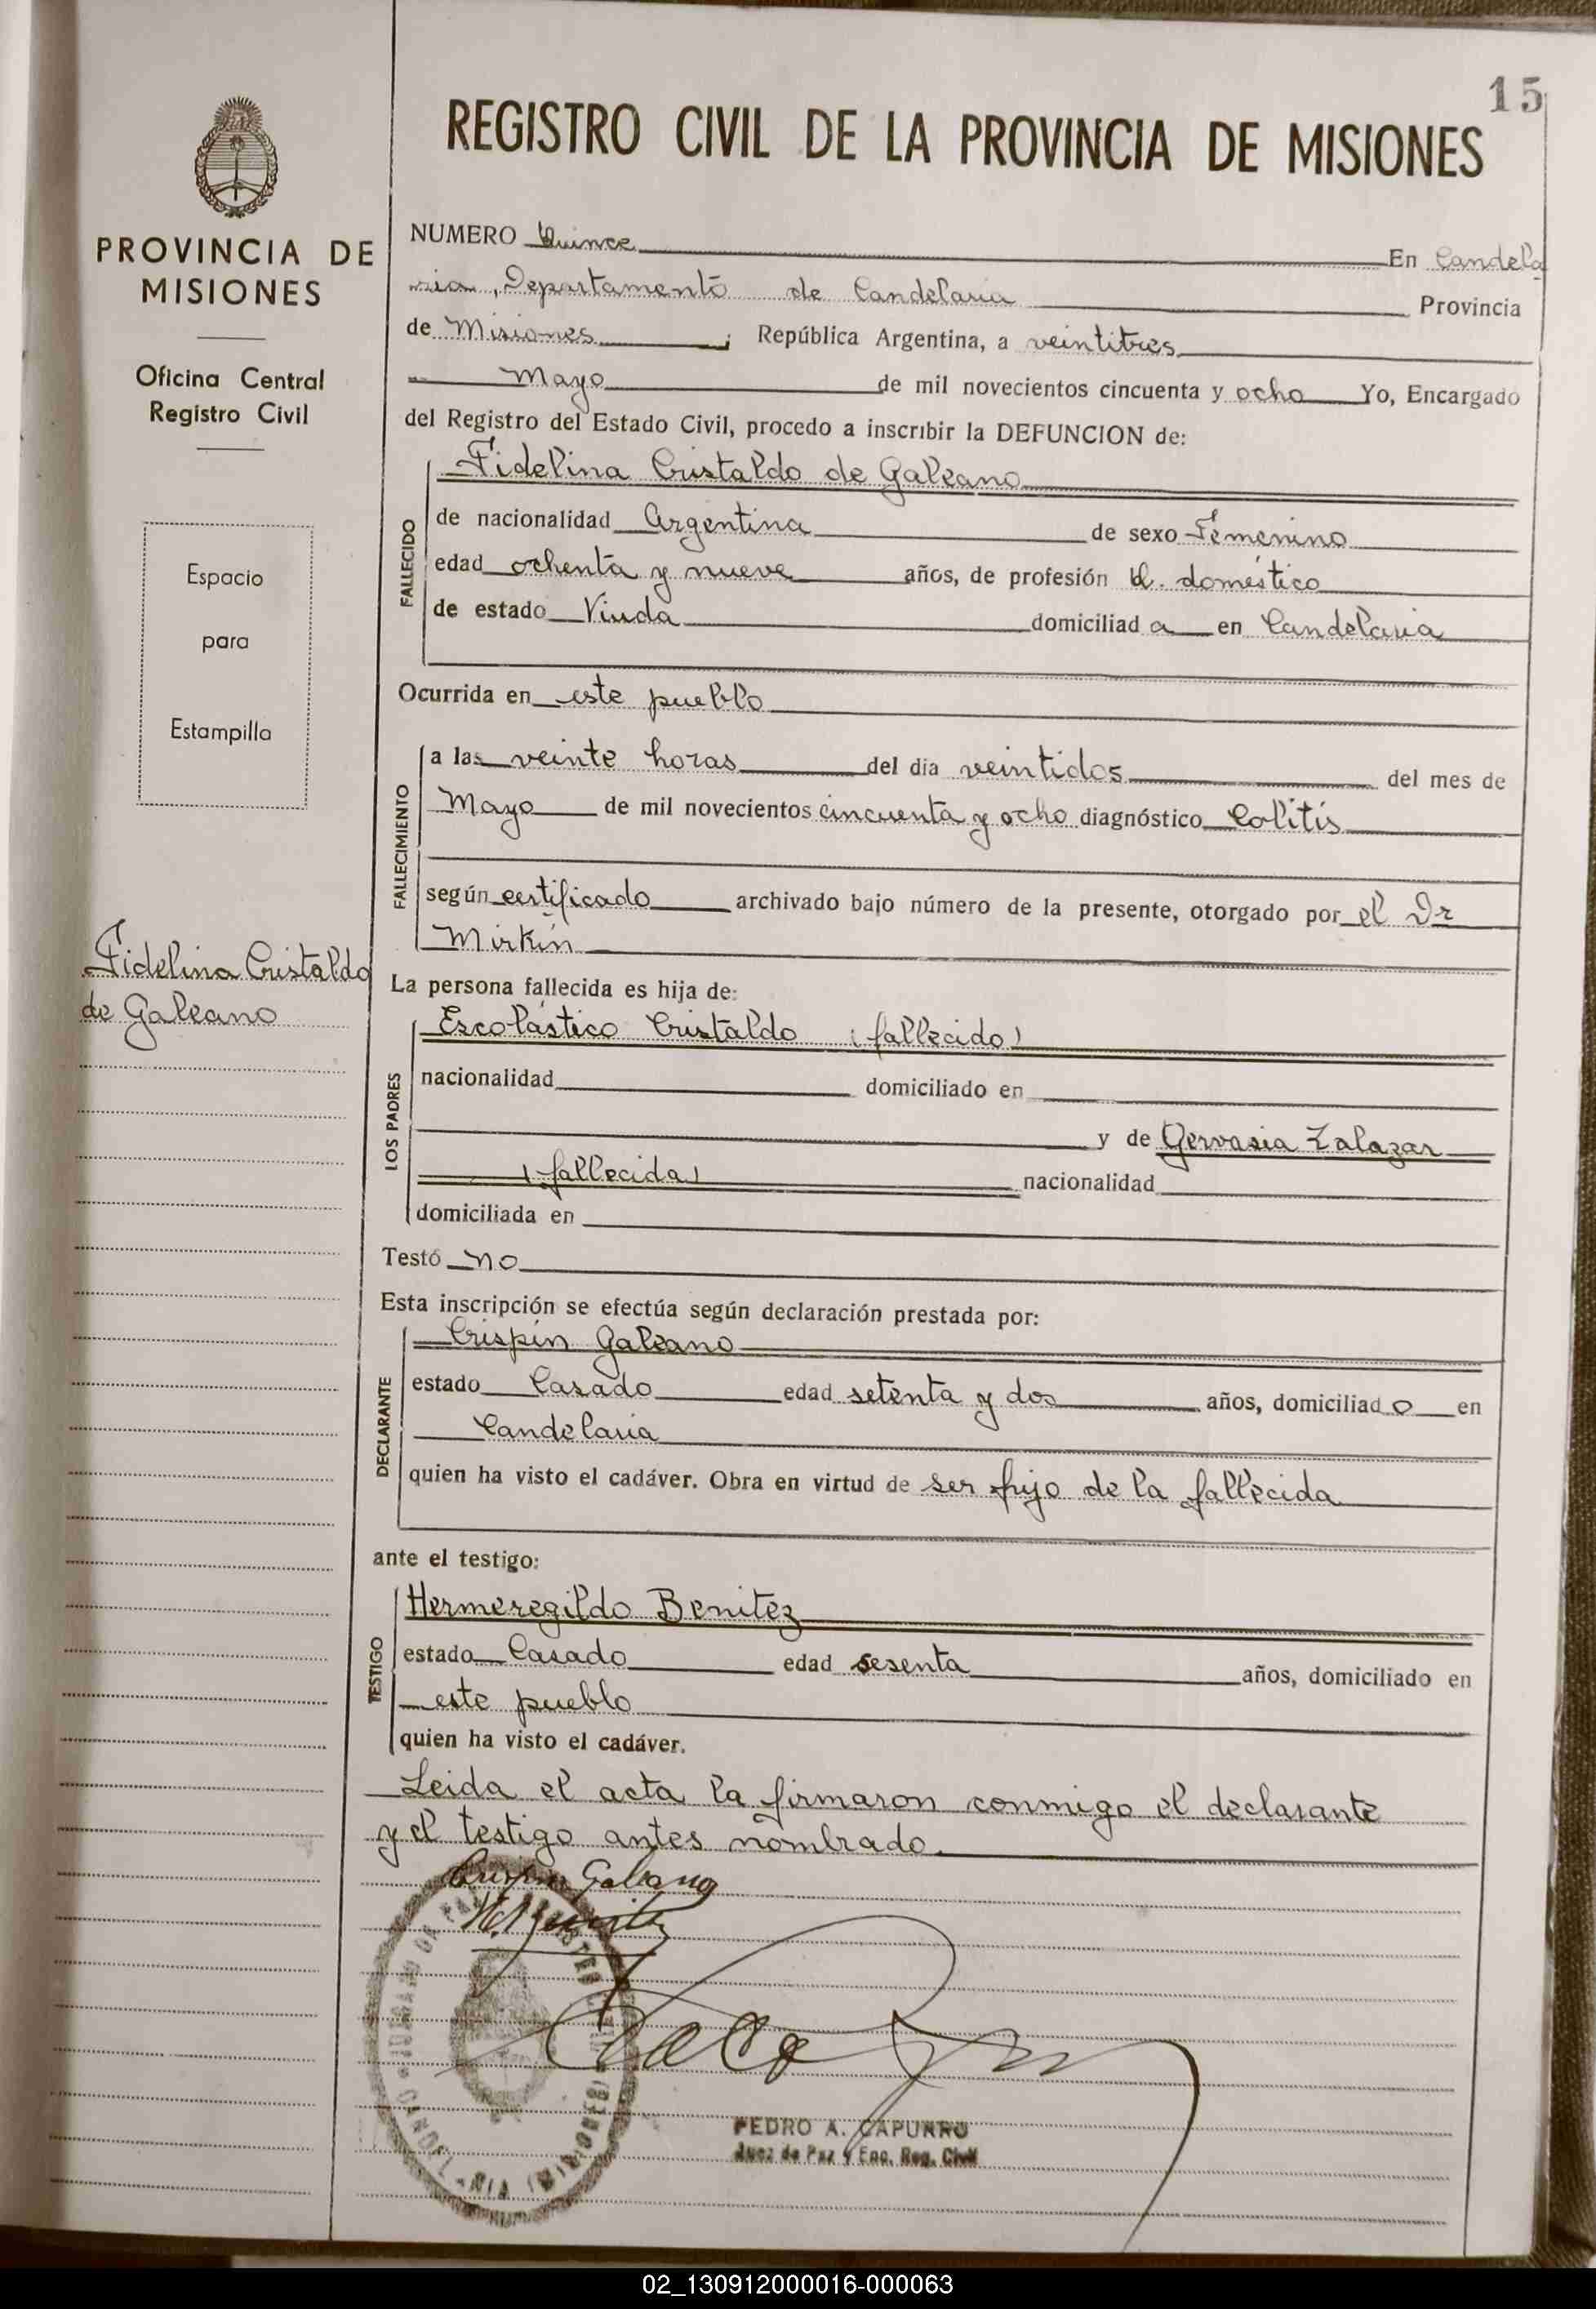 15
REGISTRO CIVIL DE LA PROVINCIA DE MISIONES
PROVINCIA DE
MISIONES
Oficina Central
Registro Civil
Espacio
para
Estampilla
Fidelina Cristaldo
de Galeano
NUMERO Quince En Candela
ria, Departamento de Candelaria Provincia
de Misiones; República Argentina, a veintitres
Mayo de mil novecientos cincuenta y ocho Yo, Encargado
del Registro del Estado Civil, procedo a inscribir la DEFUNCION de:
FALLECIDO
Fidelina Cristaldo de Galeano
de nacionalidad Argentina de sexo Femenino
edad ochenta y nueve años, de profesión Q. doméstico
de estado Viuda domiciliad a en Candelaria
Ocurrida en este pueblo
FALLECIMIENTO
a las veinte horas del día veintidos del mes de
Mayo de mil novecientos cincuenta y ocho diagnóstico Colitis
según certificado archivado bajo número de la presente, otorgado por el Dr
Mirkin
La persona fallecida es hija de:
LOS PADRES
Escolástico Cristaldo (fallecido)
nacionalidad domiciliado en
y de Gervasia Zalazar
(fallecida) nacionalidad
domiciliada en
Testó no
Esta inscripción se efectúa según declaración prestada por:
DECLARANTE
Crispin Galeano
estado Casado edad setenta y dos años, domiciliad o en
Candelaria
quien ha visto el cadáver. Obra en virtud de ser hijo de la fallecida
ante el testigo:
TESTIGO
Hermeregildo Benitez
estado Casado edad sesenta años, domiciliado en
este pueblo
quien ha visto el cadáver.
Leida el acta la firmaron conmigo el declarante
y el testigo antes nombrado.
Crispin Galeano
H. Benitez
PEDRO A. CAPURRO
Juez de Paz y Enc. Reg. Civil
02_130912000016-000063